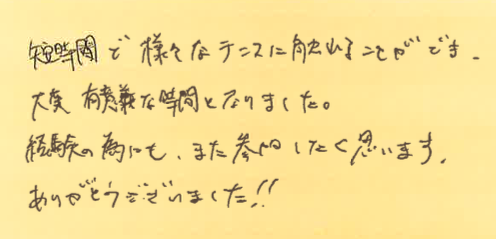 短時間で様々なテニスに触れることができ、
大変有意義な時間となりました。
経験の為にも、また参加したく思います。
ありがとうございました!!